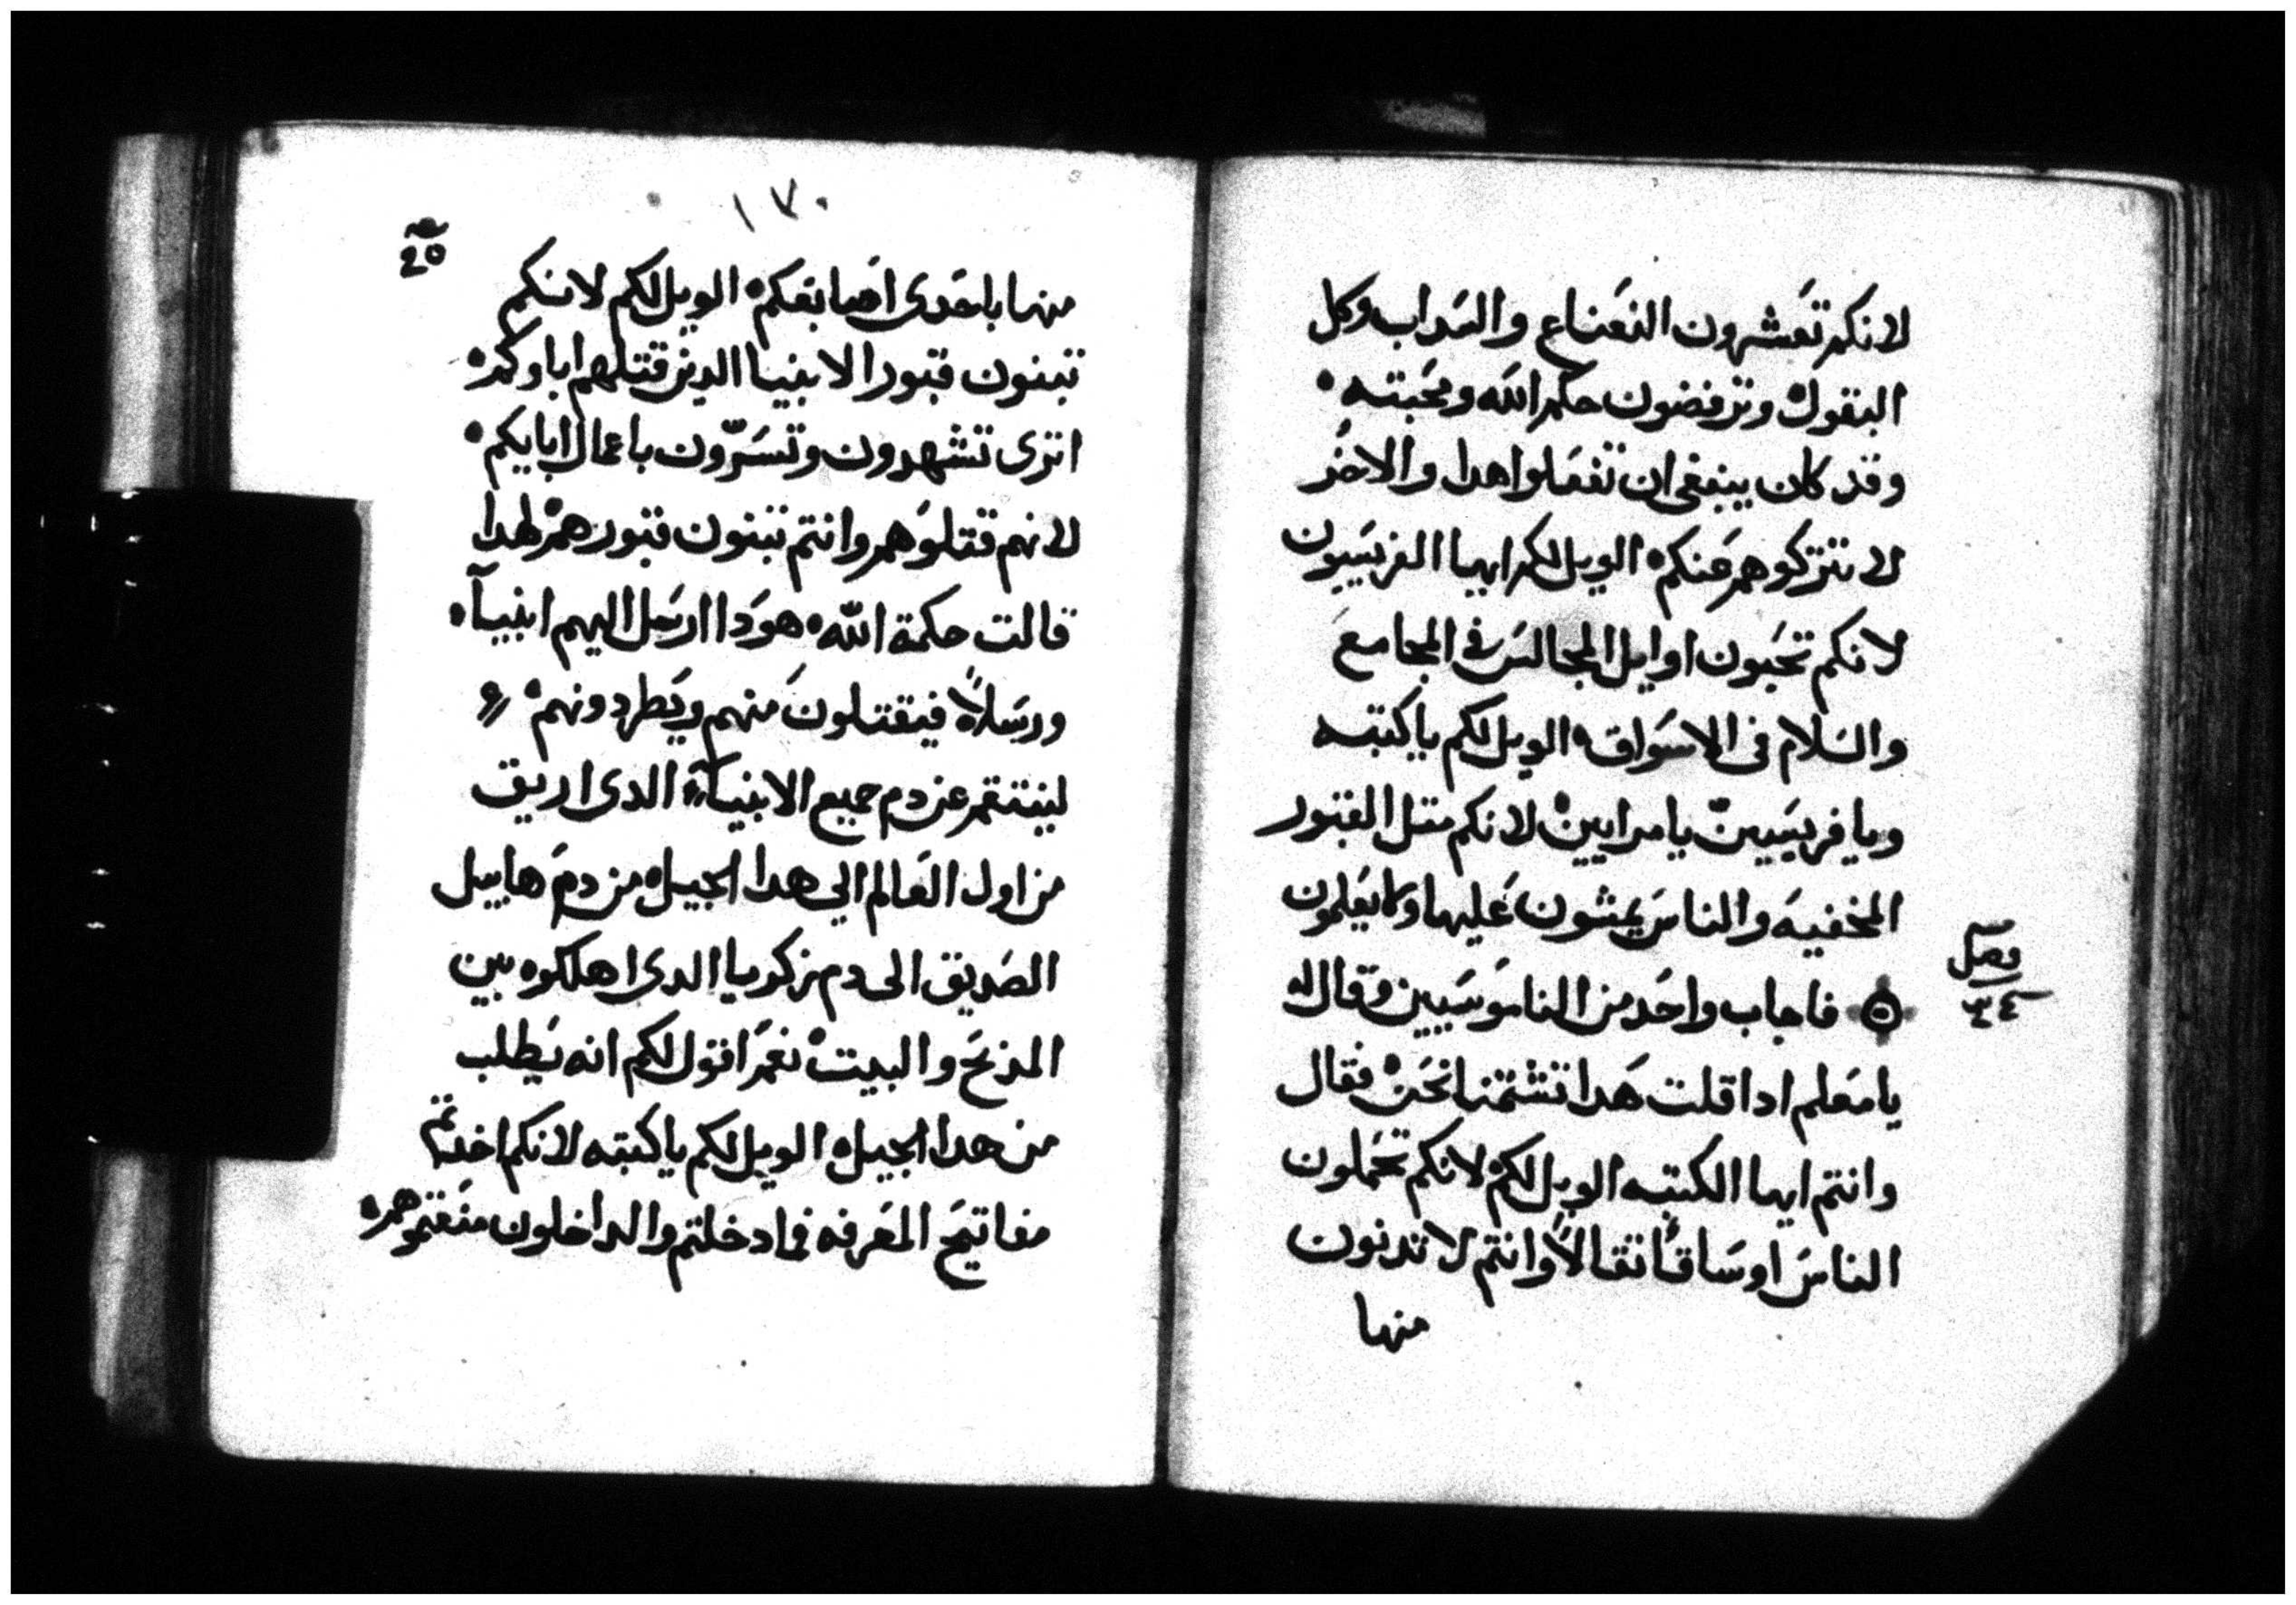 لانكم تعشرون النعناع والسداب وكل
البقول وترفضون حكم الله ومحبته
وقد كان ينبغى ان تفعلوا هدا والاخر
لا تتركوهم عنكم الويل لكم ايها الفريسيون
لانكم تحبون اوايل المجالس فى المجامع
والسلام فى الاسواق الويل لكم ياكتبه
ويا فريسيين يا مرايين لانكم متل القبور
المخفيه والناس يمشون عليها ولا يعلمون
فصل
٣٤
فاجاب واحد من الناموسيين وقال له
يا معلم ادا قلت هدا تشتمنا نحن فقال
وانتم ايها الكتبه الويل لكم لانكم تحملون
الناس اوساقا تقالا وانتم لا تدنون
منها
١٧٠
منها باحدى اصابعكم الويل لكم لانكم
تبنون قبور الانبيا الدين قتلهم اباوكم
اترى تشهدون وتسرّون باعمال ابايكم
لانهم قتلوهم وانتم تبنون قبورهم لهدا
قالت حكمة الله هودا ارسل اليهم انبيآ
ورسلاً فيقتلون منهم ويطردونهم
لينتقم عن دم جميع الانبيآ الدى اريق
من اول العالم الي هدا الجيل من دم هابيل
الصديق الى دم زكريا الدى اهلكوه بين
المذبح والبيت نعم اقول لكم انه يطلب
من هدا الجيل الويل لكم ياكتبه لانكم اخدتم
مفاتيح المعرفه فما دخلتم والداخلون منعتموهم